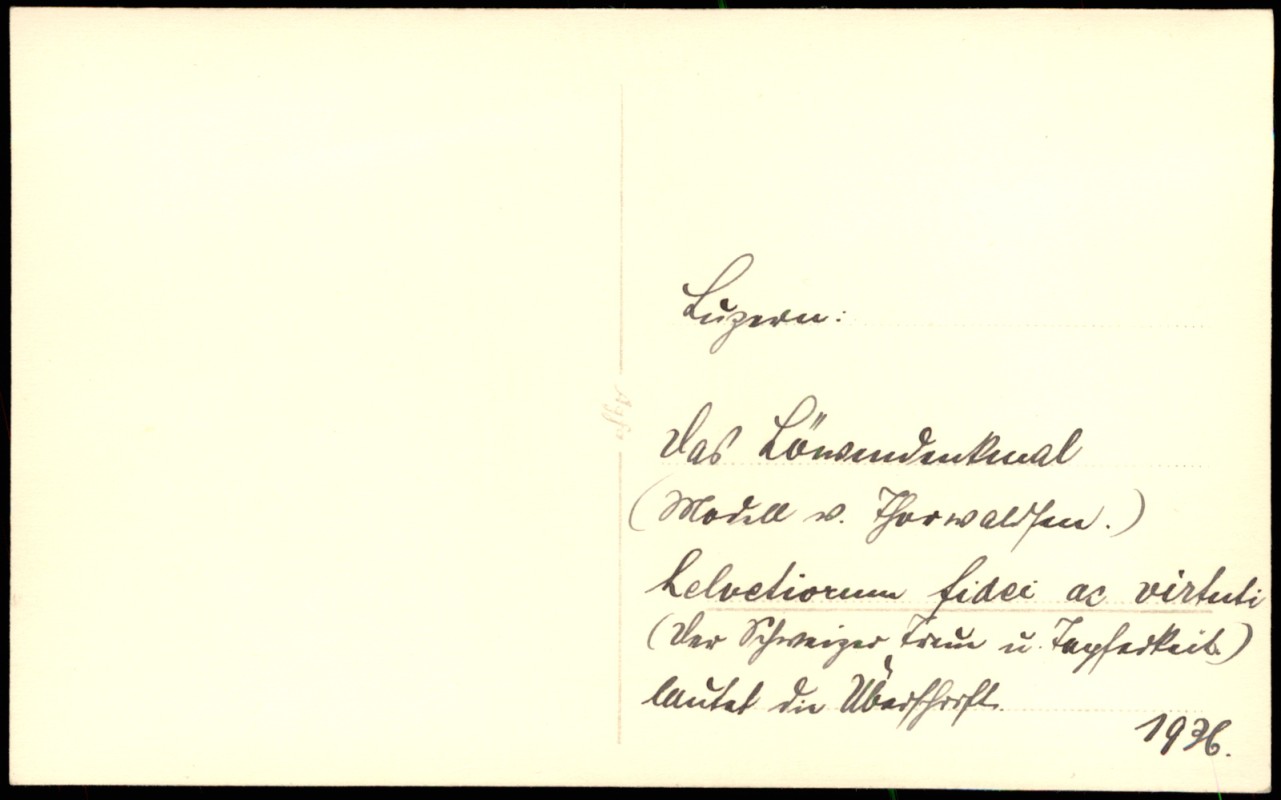 Luzern:
Das Löwendenkmal
(Modell v. Thorwaldsen.)
helvetiorum fidei ac virtuti
(Der Schweizer Treue u. Tapferkeit.)
lautet die Überschrift.
1936.
Agfa